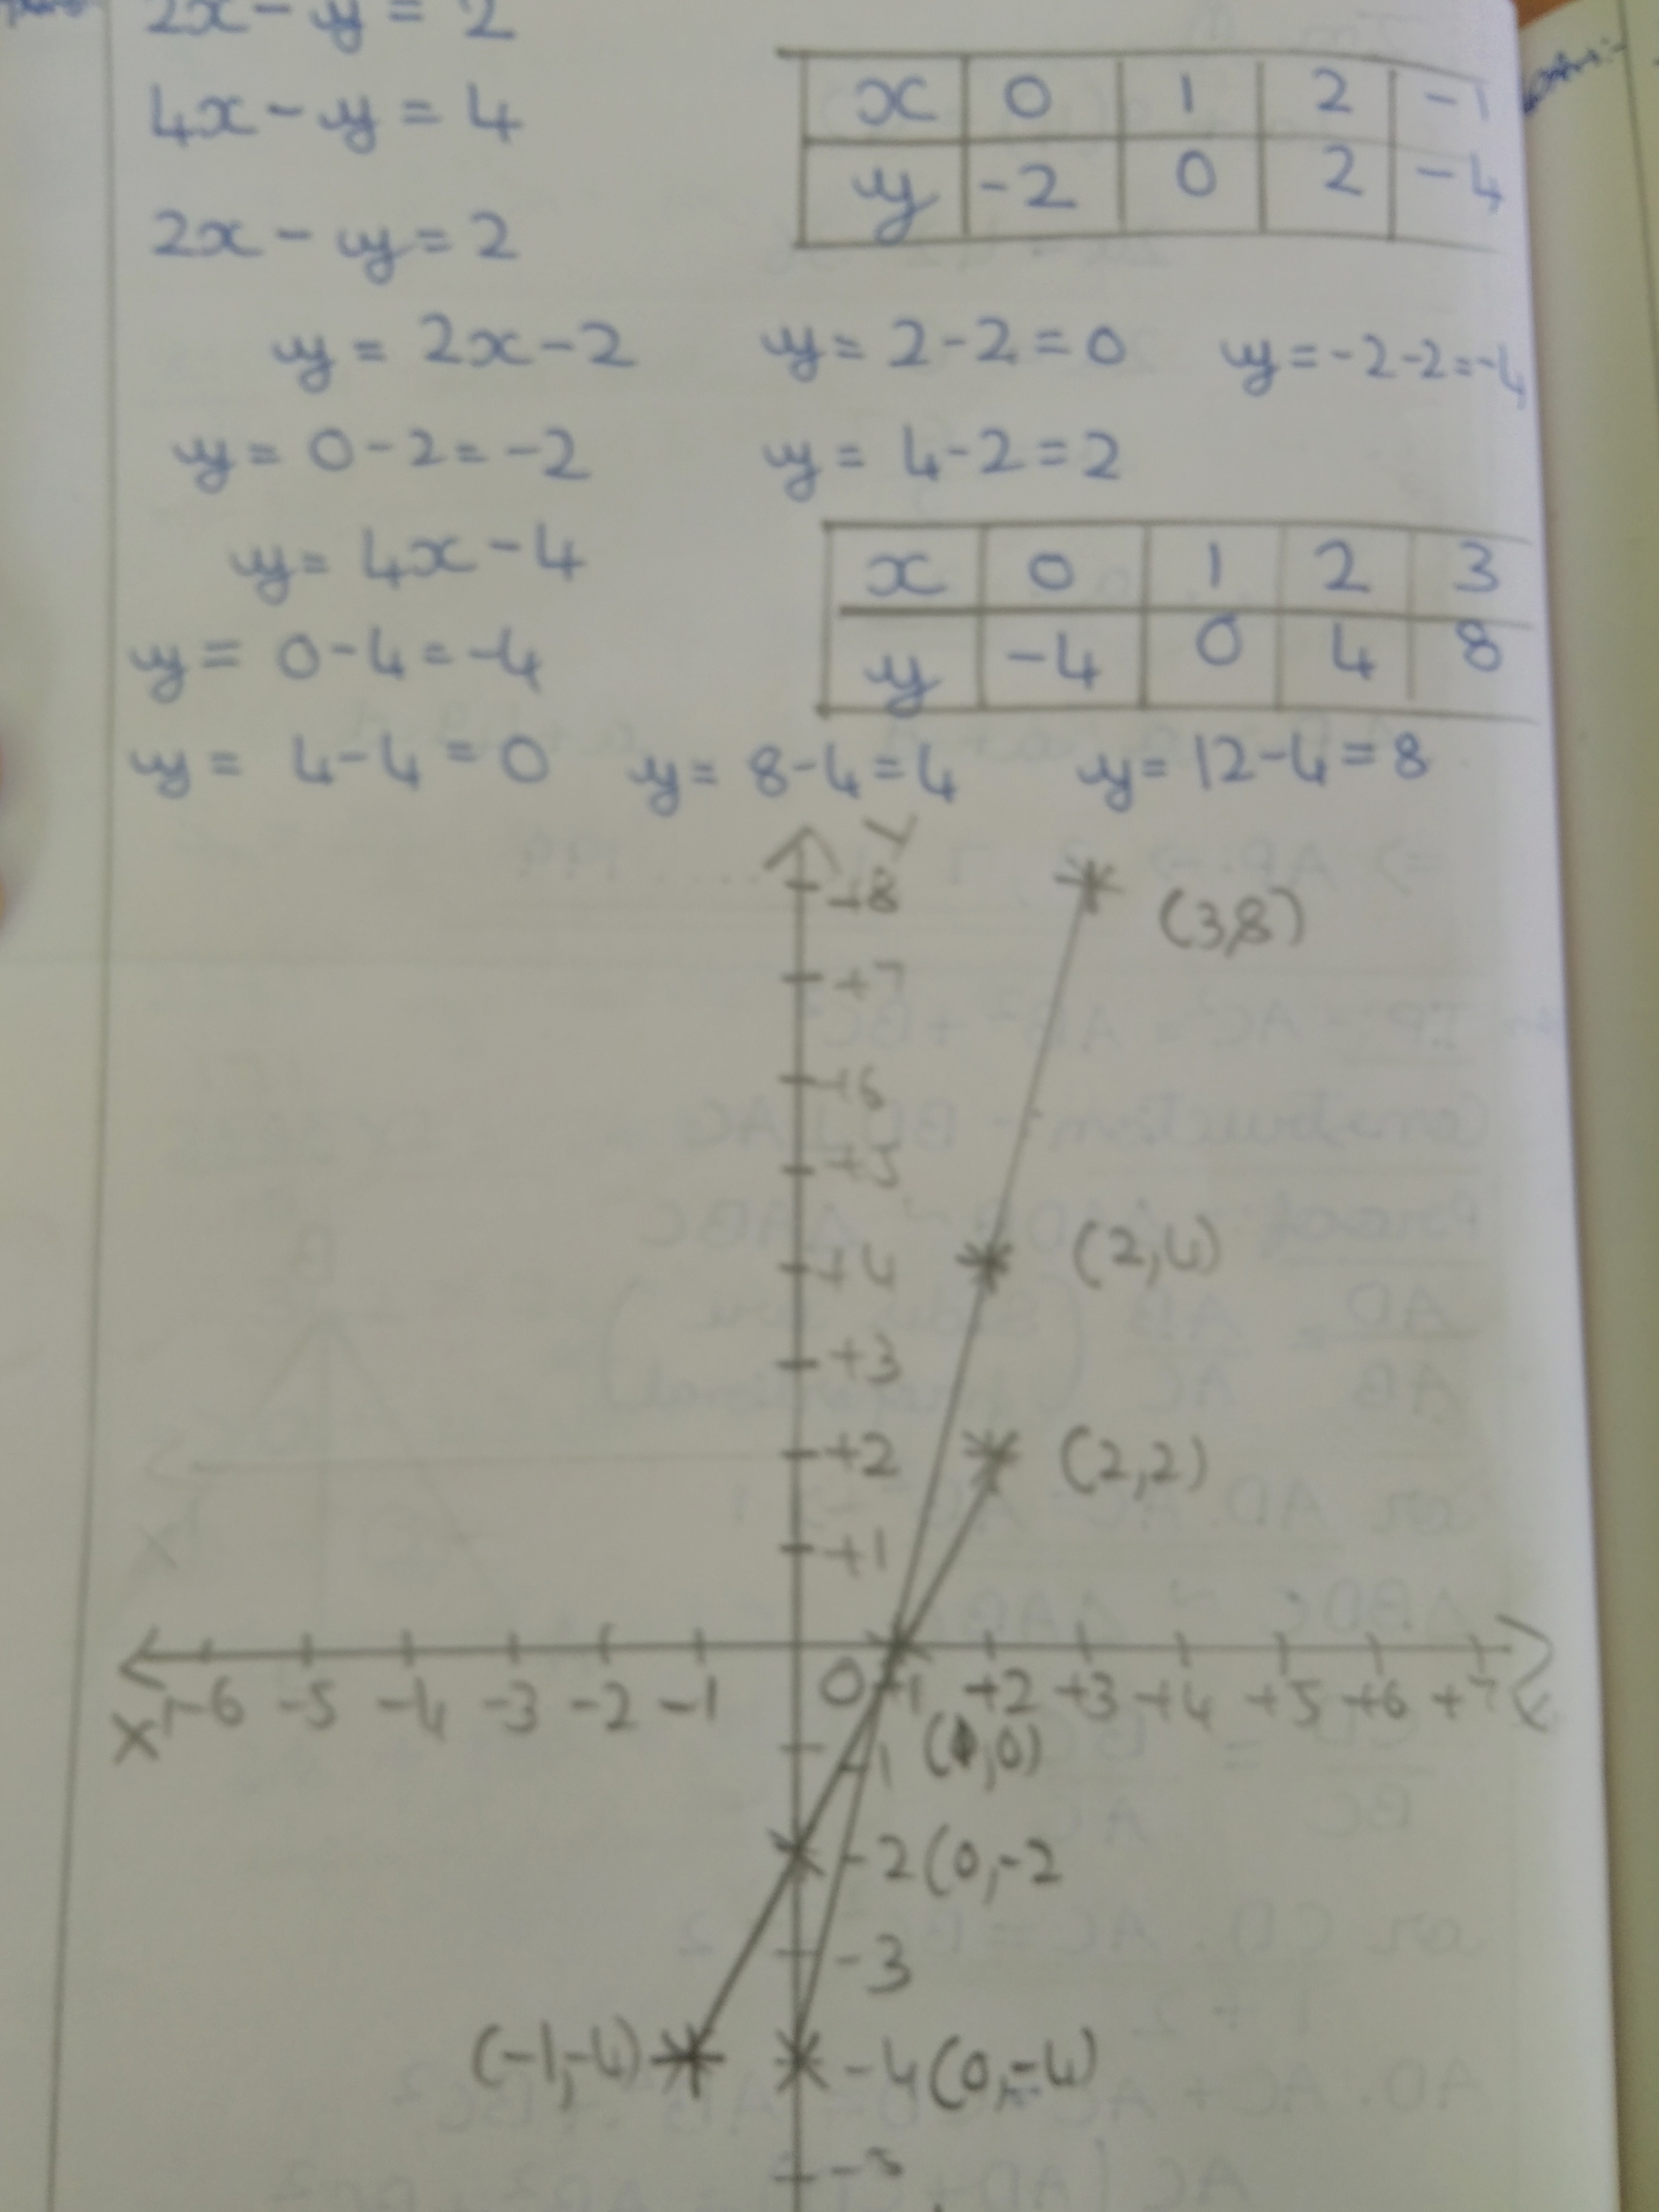 2x - y = 2
4x - y = 4
x 0 1 2 -1
y -2 0 2 -4
2x - y = 2
y = 2x - 2 y = 2-2 = 0 y = -2-2 = -4
y = 0-2 = -2 y = 4-2 = 2
y = 4x - 4
x 0 1 2 3
y -4 0 4 8
y = 0-4 = -4
y = 4-4 = 0 y = 8-4 = 4 y = 12-4 = 8
Y
+8 (3,8)
+7
+6
+5
+4 (2,4)
+3
+2 (2,2)
+1
X' -6 -5 -4 -3 -2 -1 0 +1 +2 +3 +4 +5 +6 +7
-1 (1,0)
-2 (0,-2
-3
(-1,-4) -4 (0,-4)
-5